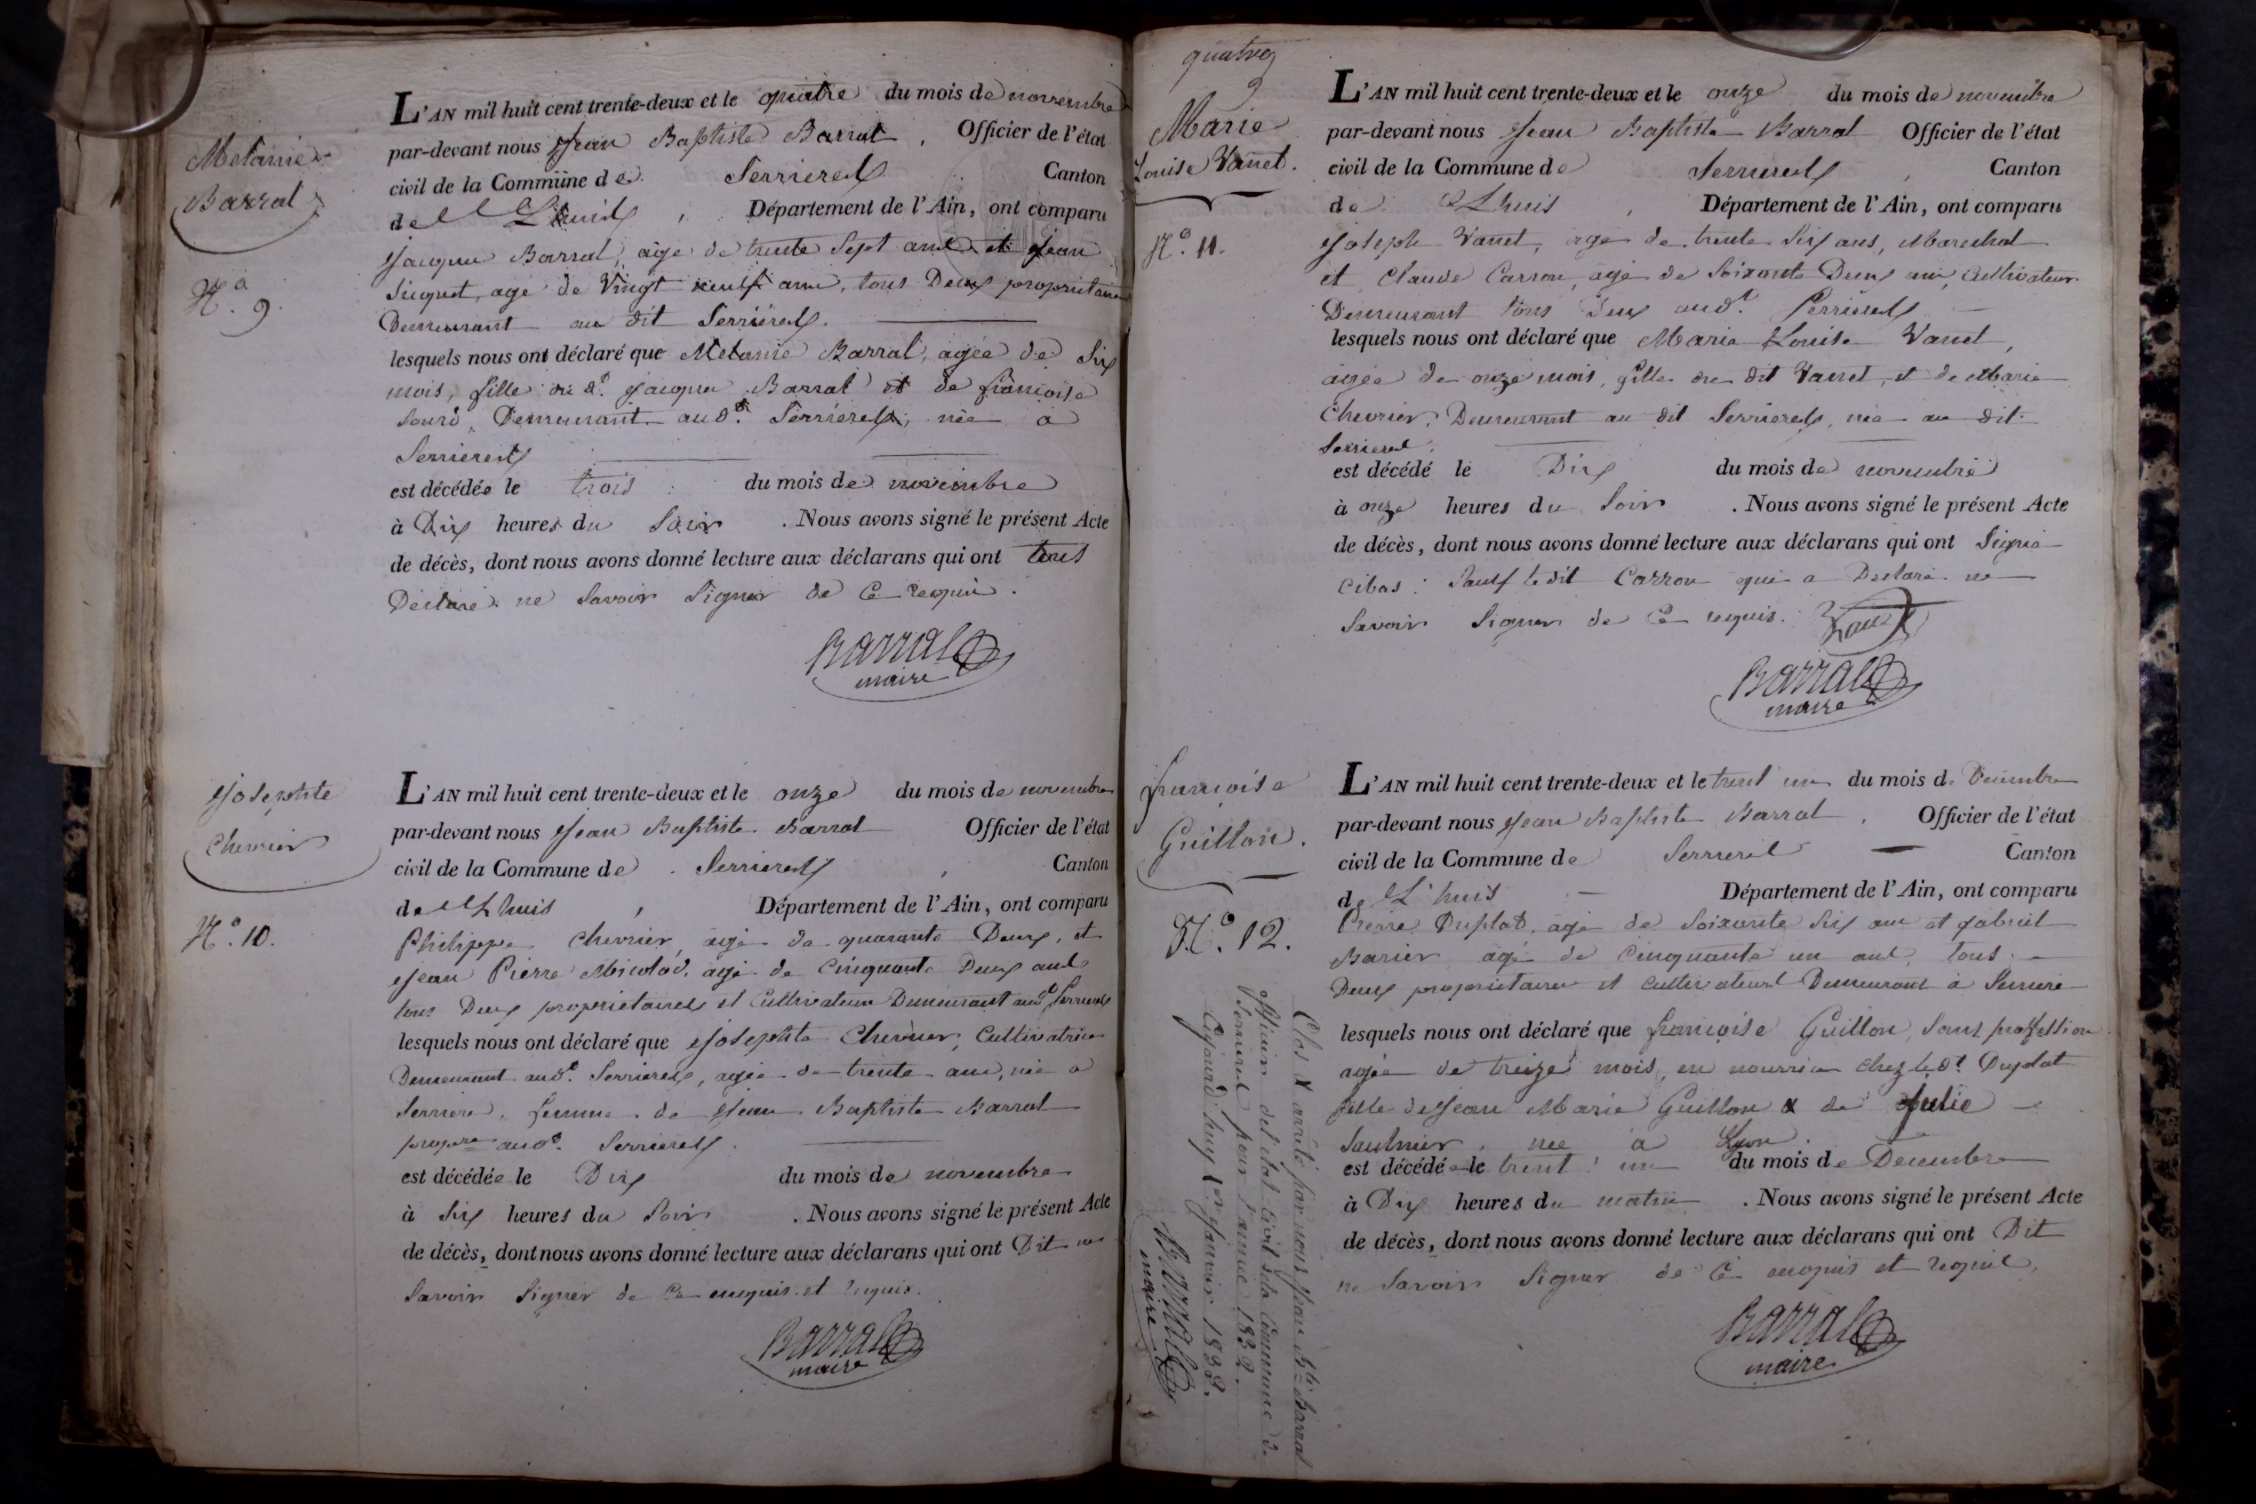 Melanie
Barral
N.o 9.
L'AN mil huit cent trente-deux et le quatre du mois de novembre
par-devant nous Jean Baptiste Barral, Officier de l'état
civil de la Commune de Serrieres Canton
de Lhuis, Département de l'Ain, ont comparu
Jacques Barral, agé de trente Sept ans et Jean
Suquet, age de Vingt neuf ans, tous Deux proprietaires
Demeurant au dit Serrieres.
lesquels nous ont déclaré que Melanie Barral, agée de Six
mois, fille du dt. Jacques Barral et de françoise
Demeurant audt. Serrieres, née à
Serrieres
est décédée le trois du mois de novembre
à Dix heures du Soir. Nous avons signé le présent Acte
de décès, dont nous avons donné lecture aux déclarans qui ont tous
Déclaré ne Savoir Signer de Ce requis.
Barral
maire
Josephte
Chevrier
N.o 10.
L'AN mil huit cent trente-deux et le onze du mois de novembre
par-devant nous Jean Baptiste Barral Officier de l'état
civil de la Commune de Serrieres, Canton
de Lhuis, Département de l'Ain, ont comparu
Philippe Chevrier, agé de quarante Deux, et
Jean Pierre Micolod, agé de Cinquante Deux ans
tous Deux proprietaires et Cultivateurs Demeurant audt Serrieres
lesquels nous ont déclaré que Josephte Chevrier, Cultivatrice
Demeurant audt. Serrieres, agée de trente ans, née a
Serriere, femme de Jean Baptiste Barral
propre audt. Serrieres.
est décédée le Dix du mois de novembre
à Six heures du Soir. Nous avons signé le présent Acte
de décès, dont nous avons donné lecture aux déclarans qui ont Dit ne
Savoir Signer de Ce enquis et requis.
Barral
maire
quatre
9
Marie
Louise Vanet.
N.o 11.
L'AN mil huit cent trente-deux et le onze du mois de novembre
par-devant nous Jean Baptiste Barral Officier de l'état
civil de la Commune de Serrieres, Canton
de Lhuis, Département de l'Ain, ont comparu
Joseph Vanet, agé de trente Six ans, Marechal
et Claude Carron, agé de Soixante Deux ans, Cultivateur
Demeurant tous Deux audt. Serrieres
lesquels nous ont déclaré que Marie Louise Vanet,
agée de onze mois, fille du dit Vanet, et de Marie
Chevrier, Demeurant au dit Serrieres, née au dit
Serrieres.
est décédé le Dix du mois de novembre
à onze heures du Soir. Nous avons signé le présent Acte
de décès, dont nous avons donné lecture aux déclarans qui ont Signé
Cibas: Sauf ledit Carron qui a Declaré ne
Savoir Signer de Ce requis.
Barral
maire
françoise
Guillon.
N.o 12.
L'AN mil huit cent trente-deux et le trent' un du mois de Decembre
par-devant nous Jean Baptiste Barral. Officier de l'état
civil de la Commune de Serrieres Canton
de L'huis Département de l'Ain, ont comparu
Pierre Duplat, agé de Soixante Six ans et gabriel
Barier agé de Cinquante un ans, tous
Deux proprietaires et Cultivateurs Demeurant à Serriere
lesquels nous ont déclaré que françoise Guillon, Sans proffession
agée de treize mois, en nourrice Chez le dt Duplat
fille de Jean Marie Guillon & de Julie
Saulnier, née à Lyon.
est décédée le trent' un du mois de Decembre
à Dix heures du matin. Nous avons signé le présent Acte
de décès, dont nous avons donné lecture aux déclarans qui ont Dit
ne Savoir Signer de Ce enquis et requis,
Barral
maire
Clos & arrété par nous Jean Bte Barral
officier de l'état Civil de la Commune de
Serrieres pour l'année 1832.
Aujourd'huy 1er Janvier 1833.
Barral
maire